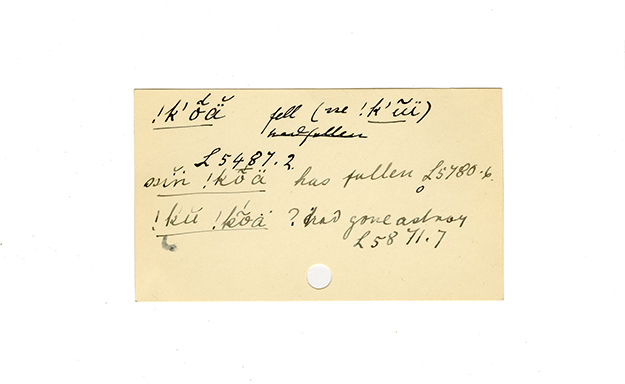 !k'ŏ́ä̆ fell (see !k'ũï)
had fallen
L 5487.2.
ssĭn !kŏ̃ä has fallen L5780.6.
!kŭ !kŏ́ä ? had gone astray
L 5871.7